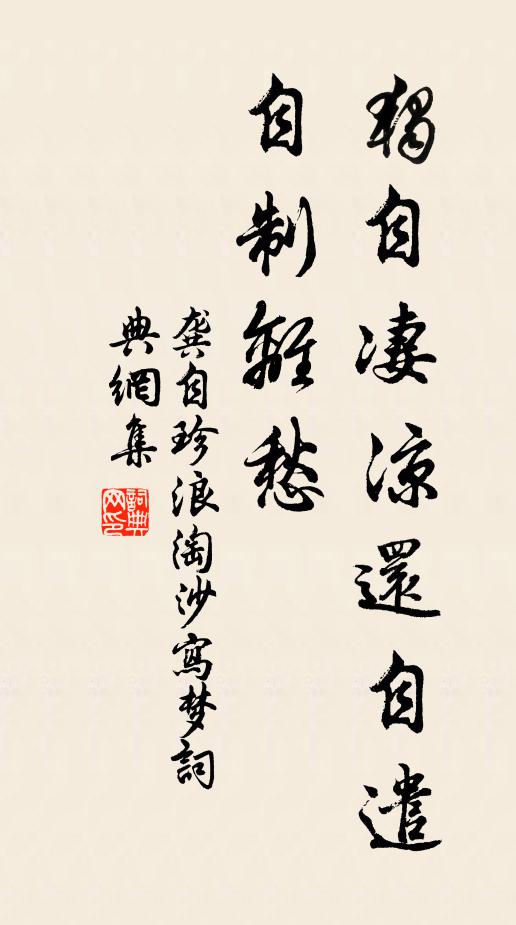 獨自凄涼還自遣
自制離愁
龔自珍浪淘沙寫梦詞
典網集
詞典網印